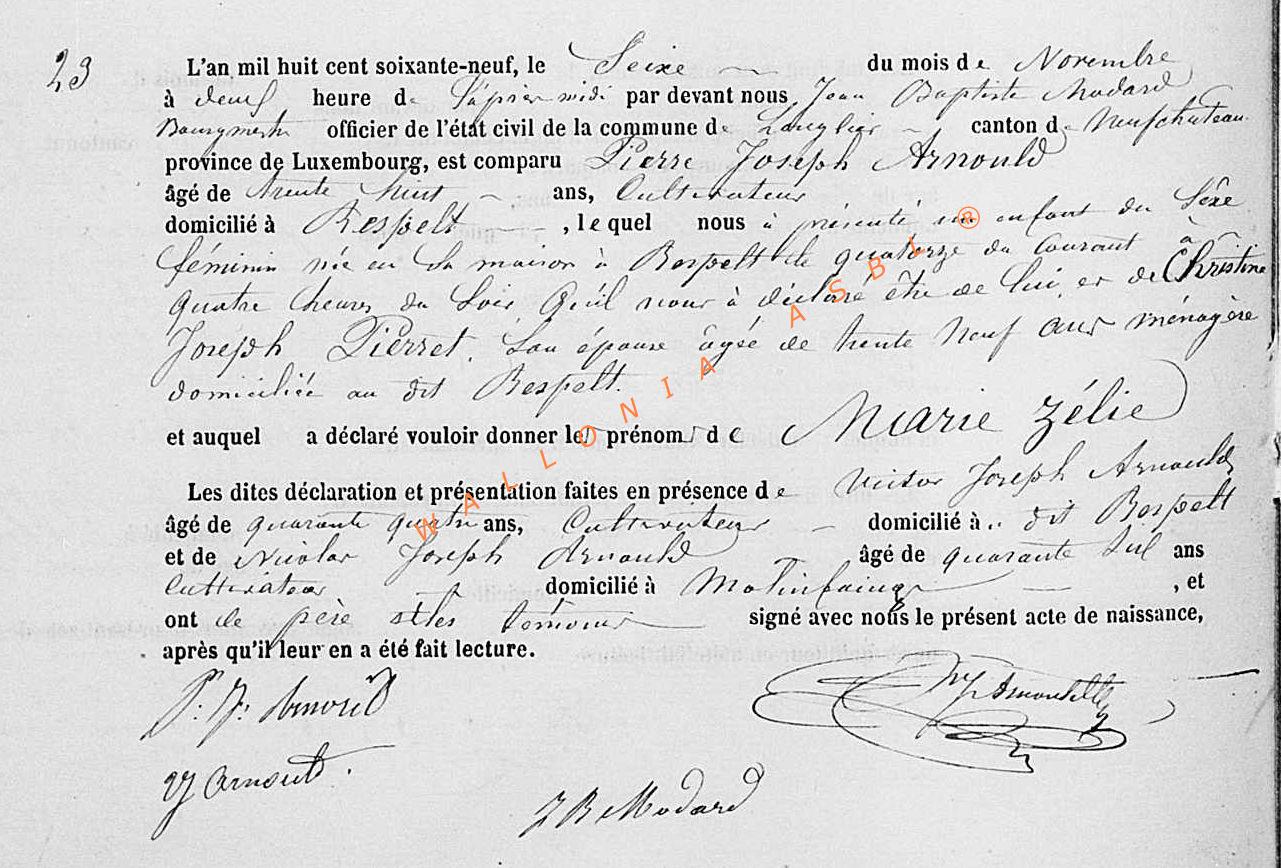 23
L'an mil huit cent soixante-neuf, le Seize du mois de Novembre
à deux heure de l'après midi par devant nous Jean Baptiste Modard
Bourgmestre officier de l'état civil de la commune de Longlier canton de Neufchateau
province de Luxembourg, est comparu Pierre Joseph Arnould
âgé de trente huit ans, Cultivateur
domicilié à Respelt, lequel nous à présenté un enfant du Sèxe
féminin née en sa maison à Respelt le quatorze du courant à
quatre heures du Soir, Qu'il nous à déclaré être de lui, et de Christine
Joseph Pierret, Son épouse âgée de trente Neuf ans ménagère
domiciliée au dit Respelt.
et auquel a déclaré vouloir donner les prénoms de Marie Zélie
Les dites déclaration et présentation faites en présence de Victor Joseph Arnould
âgé de quarante quatre ans, Cultivateur domicilié à dit Respelt
et de Nicolas Joseph Arnould âgé de quarante ans
Cultivateur domicilié à Molinfaing, et
ont le père et les témoins signé avec nous le présent acte de naissance,
après qu'il leur en a été fait lecture.
P. J. Arnould
VJ Arnould.
J B Modard
WALLONIA ASBL ®